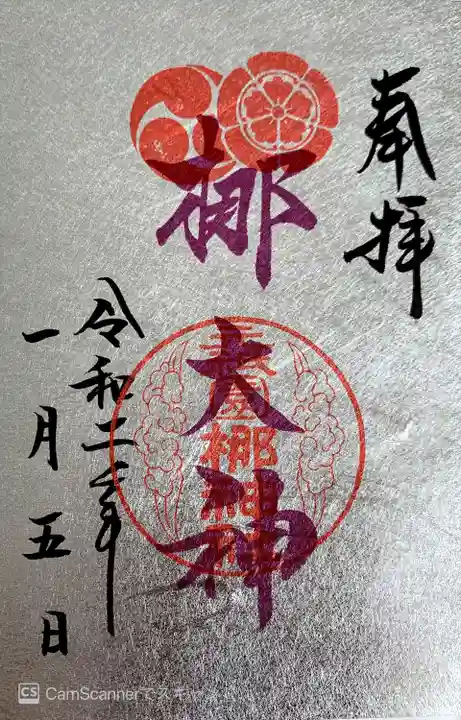 奉拝
梛
大神
元祇園梛神社
令和二年
一月五日
CS CamScannerでスキャン